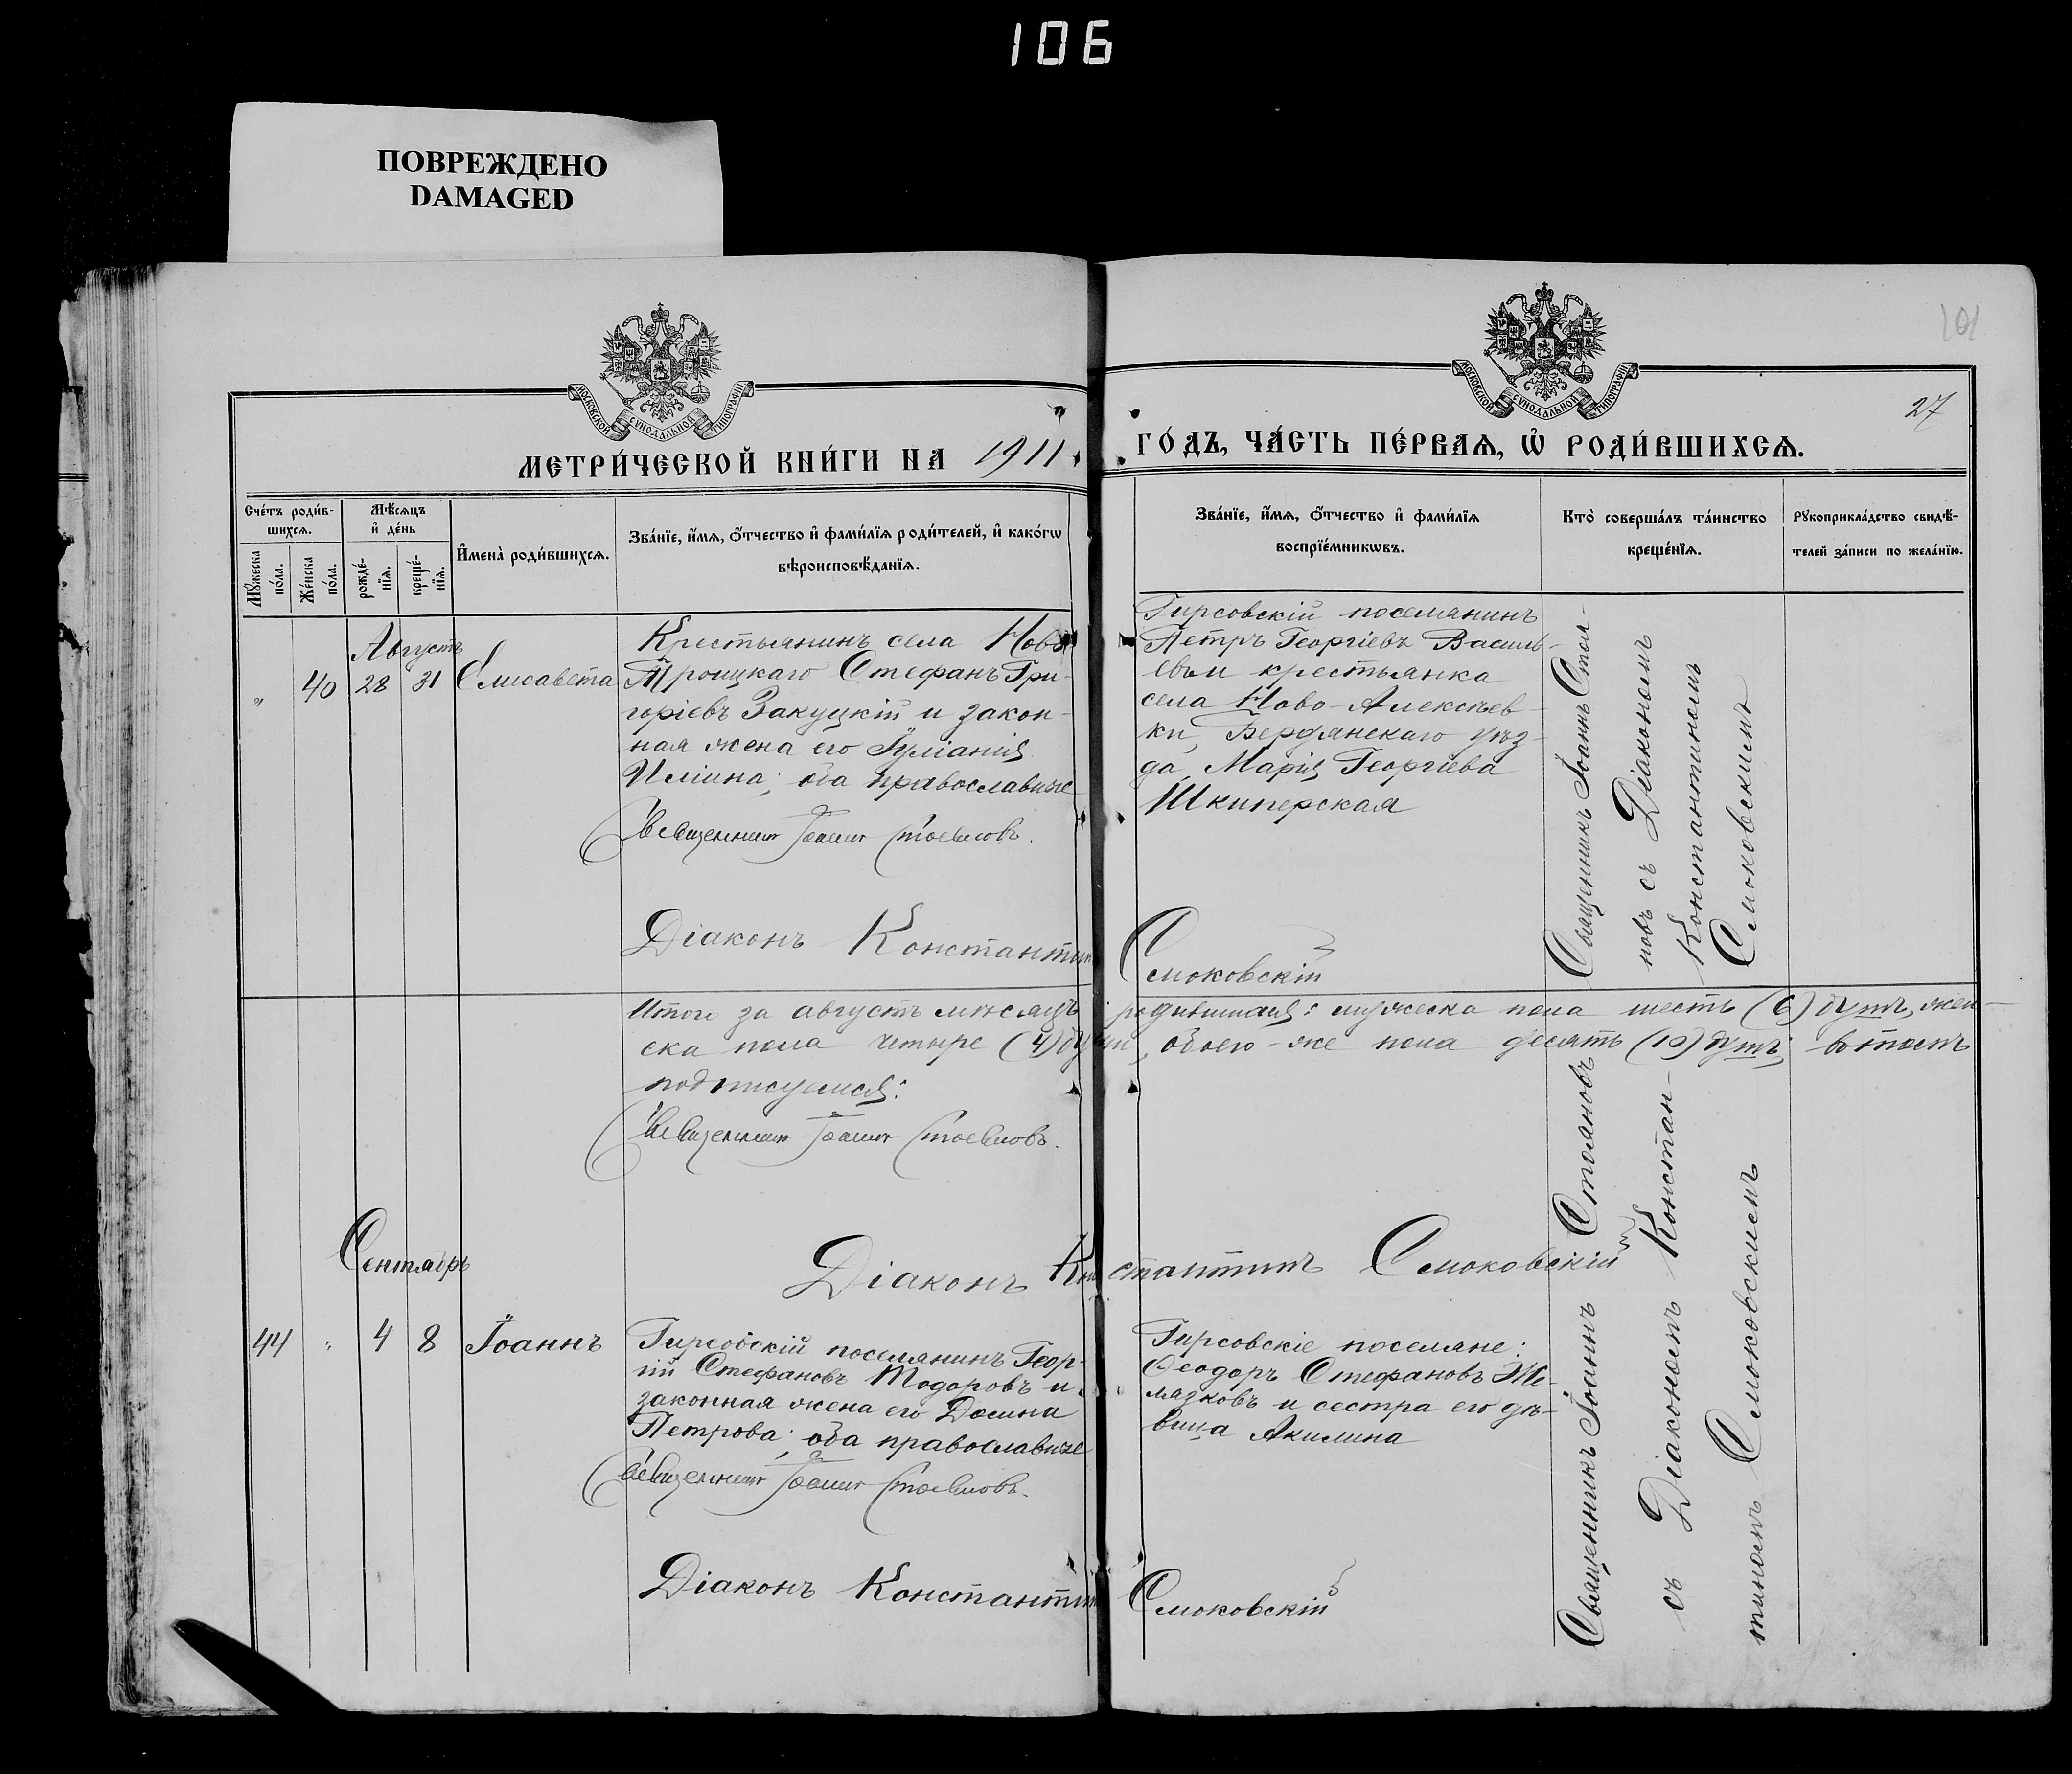 106
ПОВРЕЖДЕНО
DAMAGED
МОСКОВСКОЙ СУНОДАЛЬНОЙ ТИПОГРАФІИ
МОСКОВСКОЙ СУНОДАЛЬНОЙ ТИПОГРАФІИ
101
27
МЕТРИ́ЧЕСКОЙ КНИ́ГИ НА 1911
ГО́ДЪ, ЧА́СТЬ ПЕ́РВАЯ, Ѡ҆ РОДИ́ВШИХСЯ.
Сче́тъ роди́в-
шихся.
Мꙋ́жеска по́ла.
Же́нска по́ла.
Мѣ́сяцъ и҆ де́нь
рожде́-нїя.
креще́-нїя.
И҆мена̀ роди́вшихся.
Зва́нїе, и҆́мя, ѻ҆́тчество и҆ фами́лїя роди́телей, и҆ како́гѡ
вѣроисповѣ́данїя.
Зва́нїе, и҆́мя, ѻ҆́тчество и҆ фами́лїя
воспрїе́мникѡвъ.
Кто̀ соверша́лъ та́инство
креще́нїя.
Рꙋкоприкла́дство свидѣ́-
телей за́писи по жела́нїю.
Августъ
" 40 28 31 Елисавета
Крестьянинъ села Ново
Троицкаго Стефанъ Гри-
горіевъ Закуцкій и закон-
ная жена его Іуліанія
Иліина; оба православные
Священникъ Іоаннъ Стояновъ.
Діаконъ Константинъ Смоковскій
Гирсовскій поселянинъ
Петръ Георгіевъ Василь-
евъ и крестьянка
села Ново-Алексѣев-
ки, Бердянскаго уѣз-
да, Марія Георгіева
Шкиперская
Священникъ Іоаннъ Стоя-
новъ съ Діакономъ
Константиномъ
Смоковскимъ
Итого за августъ мѣсяцъ родившихся: мужеска пола шесть (6) душъ, жен-
ска пола четыре (4) души, обоего-же пола десять (10) душъ, въ томъ
подписуемся:
Священникъ Іоаннъ Стояновъ.
Діаконъ Константинъ Смоковскій
Сентябрь
44 " 4 8 Іоаннъ
Гирсовскій поселянинъ Геор-
гій Стефановъ Тодоровъ и
законная жена его Домна
Петрова; оба православные
Священникъ Іоаннъ Стояновъ.
Діаконъ Константинъ Смоковскій
Гирсовскіе поселяне:
Ѳеодоръ Стефановъ Же-
лязковъ и сестра его дѣ-
вица Акилина
Священникъ Іоаннъ Стояновъ
съ Діакономъ Констан-
тиномъ Смоковскимъ